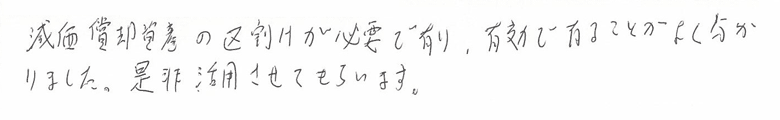 減価償却資産の区割けが必要で有り、有効で有ることがよく分か
りました。是非活用させてもらいます。